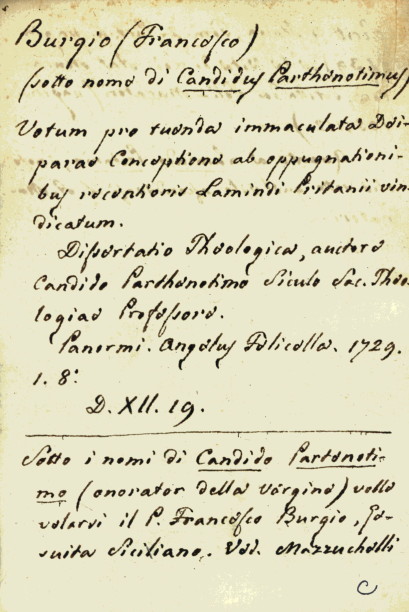 Burgio (Francesco)
(sotto nome di Candidus Parthenotimus)
Votum pro tuenda immaculata Dei-
parae Conceptione ab oppugnationi-
bus recentioris Lamindi Pritanii vin-
dicatum.
Dissertatio Theologica, auctore
Candido Parthenotimo Siculo Sac. Theo-
logiae Professore.
Panormi. Angelus Felicella. 1729.
1. 8.°
D. XII. 19.
Sotto i nomi di Candido Partenoti-
mo (onorator della vergine) volle
velarsi il P. Francesco Burgio, Ge-
suita Siciliano. Ved. Mazzuchelli